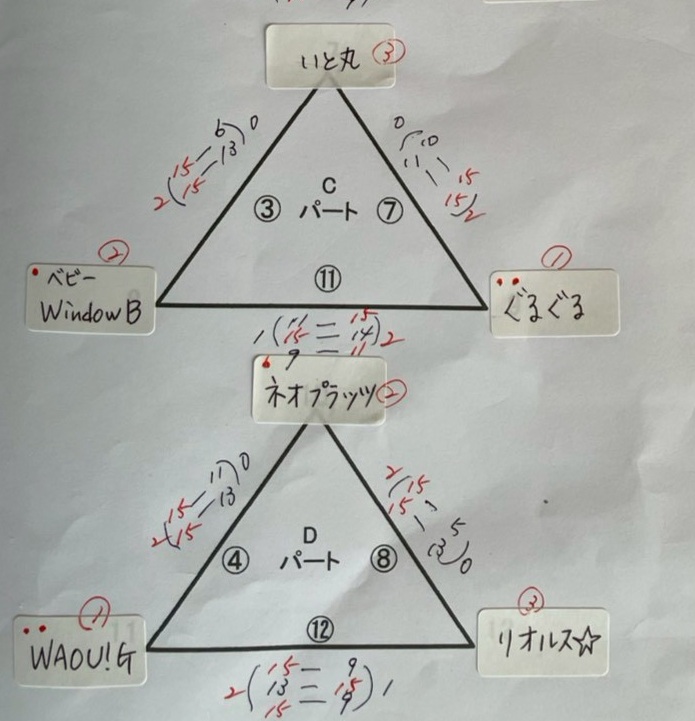 いと丸 ③
6 0
15 — 13
2 15
0 10
11 — 15
15 2
C
③ パート ⑦
⑪
②
ベビー
Window B
①
ぐるぐる
11 — 15
1 ( 15 — 14 ) 2
9 — 11
ネオプラッツ ②
11 0
15 — 13
2 ( 15
2 ( 15
15 — 5
13 ) 0
D
④ パート ⑧
⑫
①
WAOU!G
③
リオルス☆
15 — 9
2 ( 13 — 15 ) 1
15 — 9